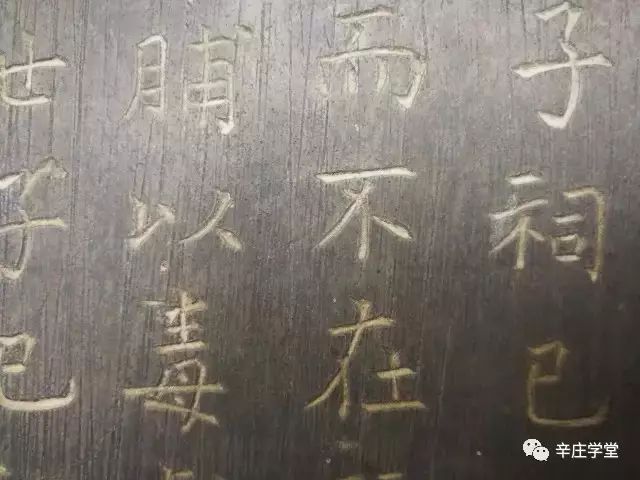 子祠已
而不在
脯以毒
世子已
辛庄学堂